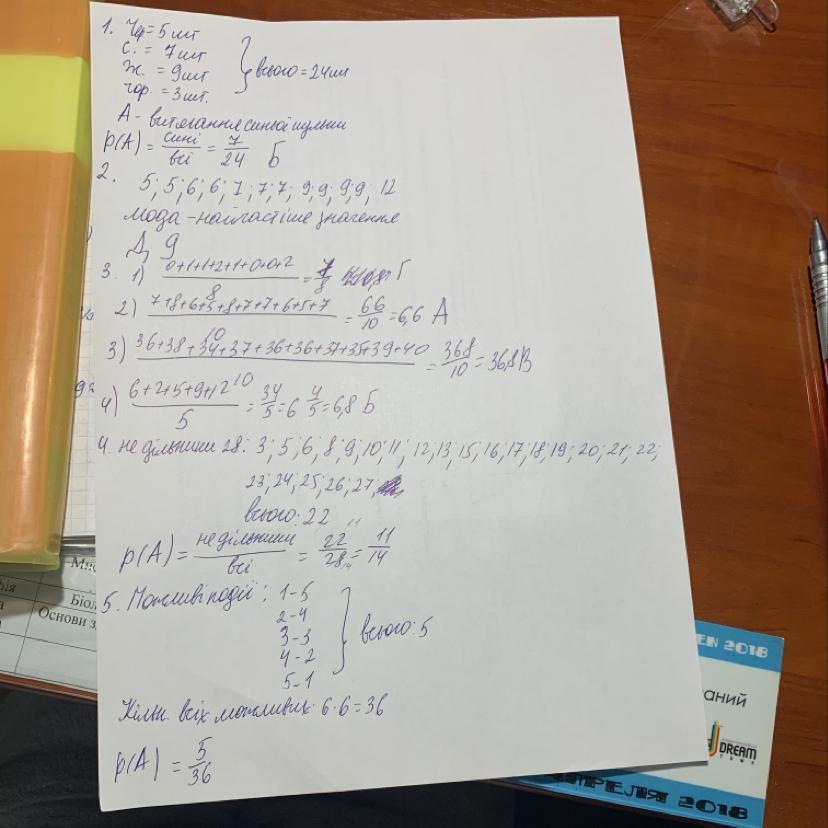 1. Чр= 5 шт
с. = 7 шт
ж. = 9 шт
чор. = 3 шт.
всього = 24 шт
А - витягання синьої кульки
p(A) = сині/всі = 7/24 Б
2.
5; 5; 6; 6; 7; 7; 7; 9; 9; 9; 9; 12
мода - найчастіше значення
Д 9
3. 1) 0+1+1+2+1+0+0+2/8 = 7/8 Г
2) 7+8+6+5+8+7+7+6+5+7/10 = 66/10 = 6,6 А
3) 36+38+34+37+36+36+37+35+39+40/10 = 368/10 = 36,8 В
4) 6+2+5+9+12/5 = 34/5 = 6 4/5 = 6,8 Б
4. не дільники 28: 3; 5; 6; 8; 9; 10; 11; 12; 13; 15; 16; 17; 18; 19; 20; 21; 22;
23; 24; 25; 26; 27;
всього: 22
p(A) = не дільники/всі = 22/28 = 11/14
5. Можливі події: 1-5
2-4
3-3
4-2
5-1
всього: 5
Кільк. всіх можливих: 6·6=36
p(A) = 5/36
Біол
Основи з
EN 2018
ваний
DREAM
TOWN
АПРЕЛЯ 2018